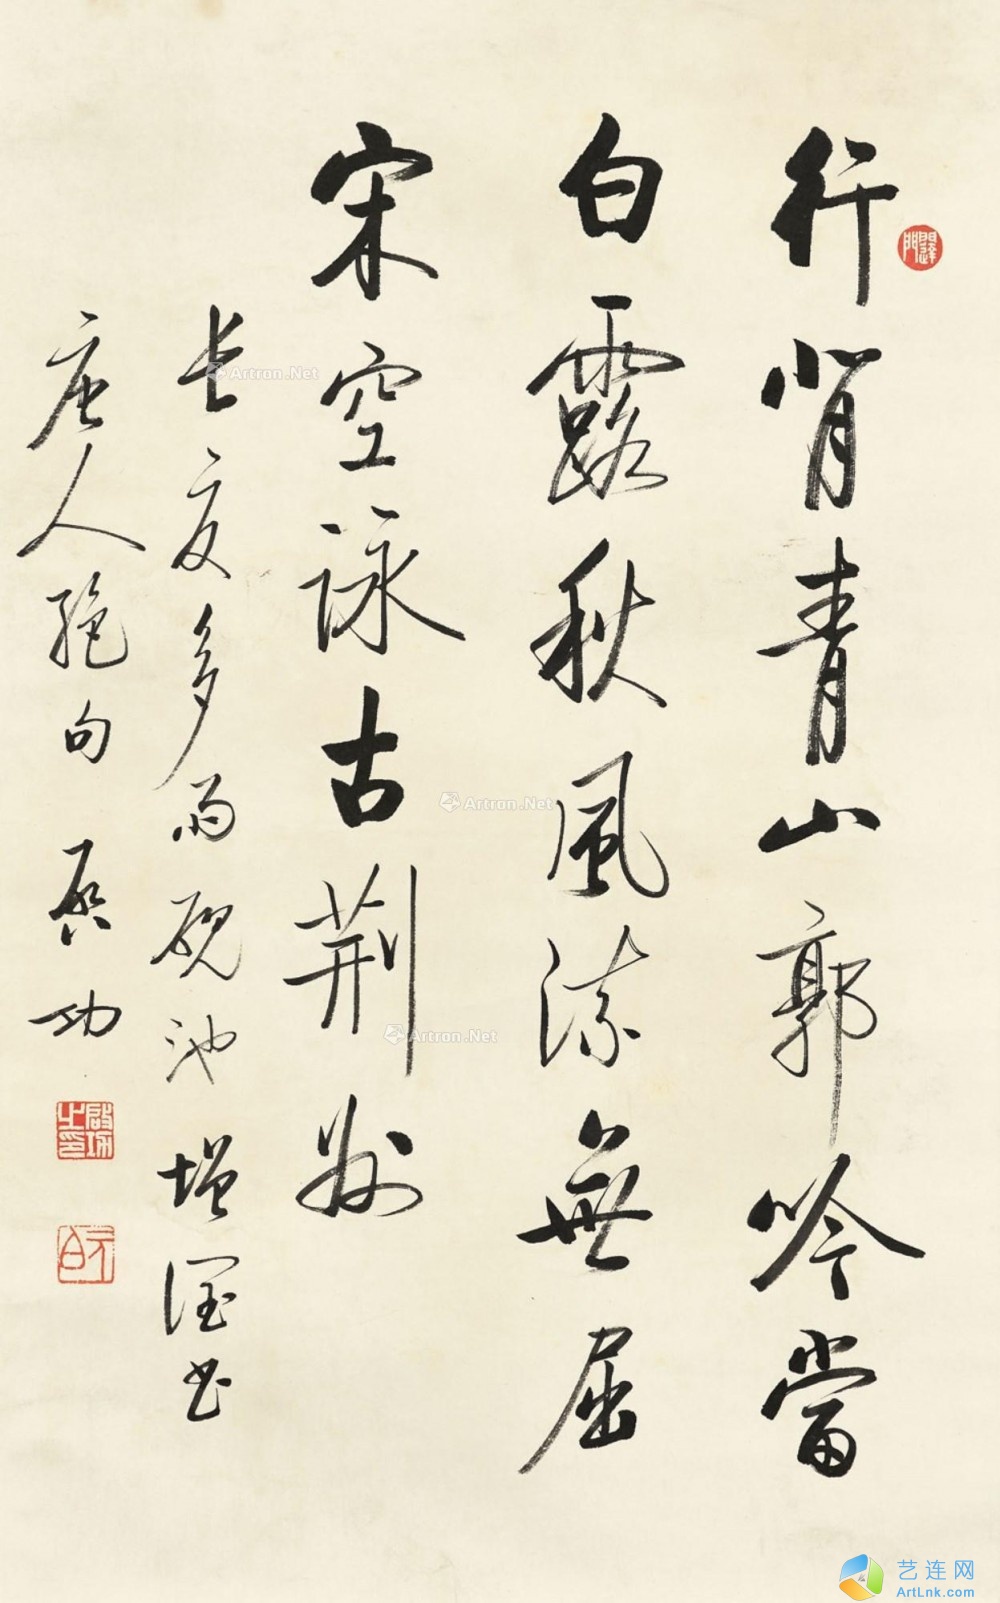 行背青山郭吟當
白露秋風流無屈
宋空詠古荆州
长夏多雨硯池增润书
唐人絶句 启功
闢門
啟功之印
元白
Artron.Net
Artron.Net
Artron.Net
艺连网
ArtLnk.com